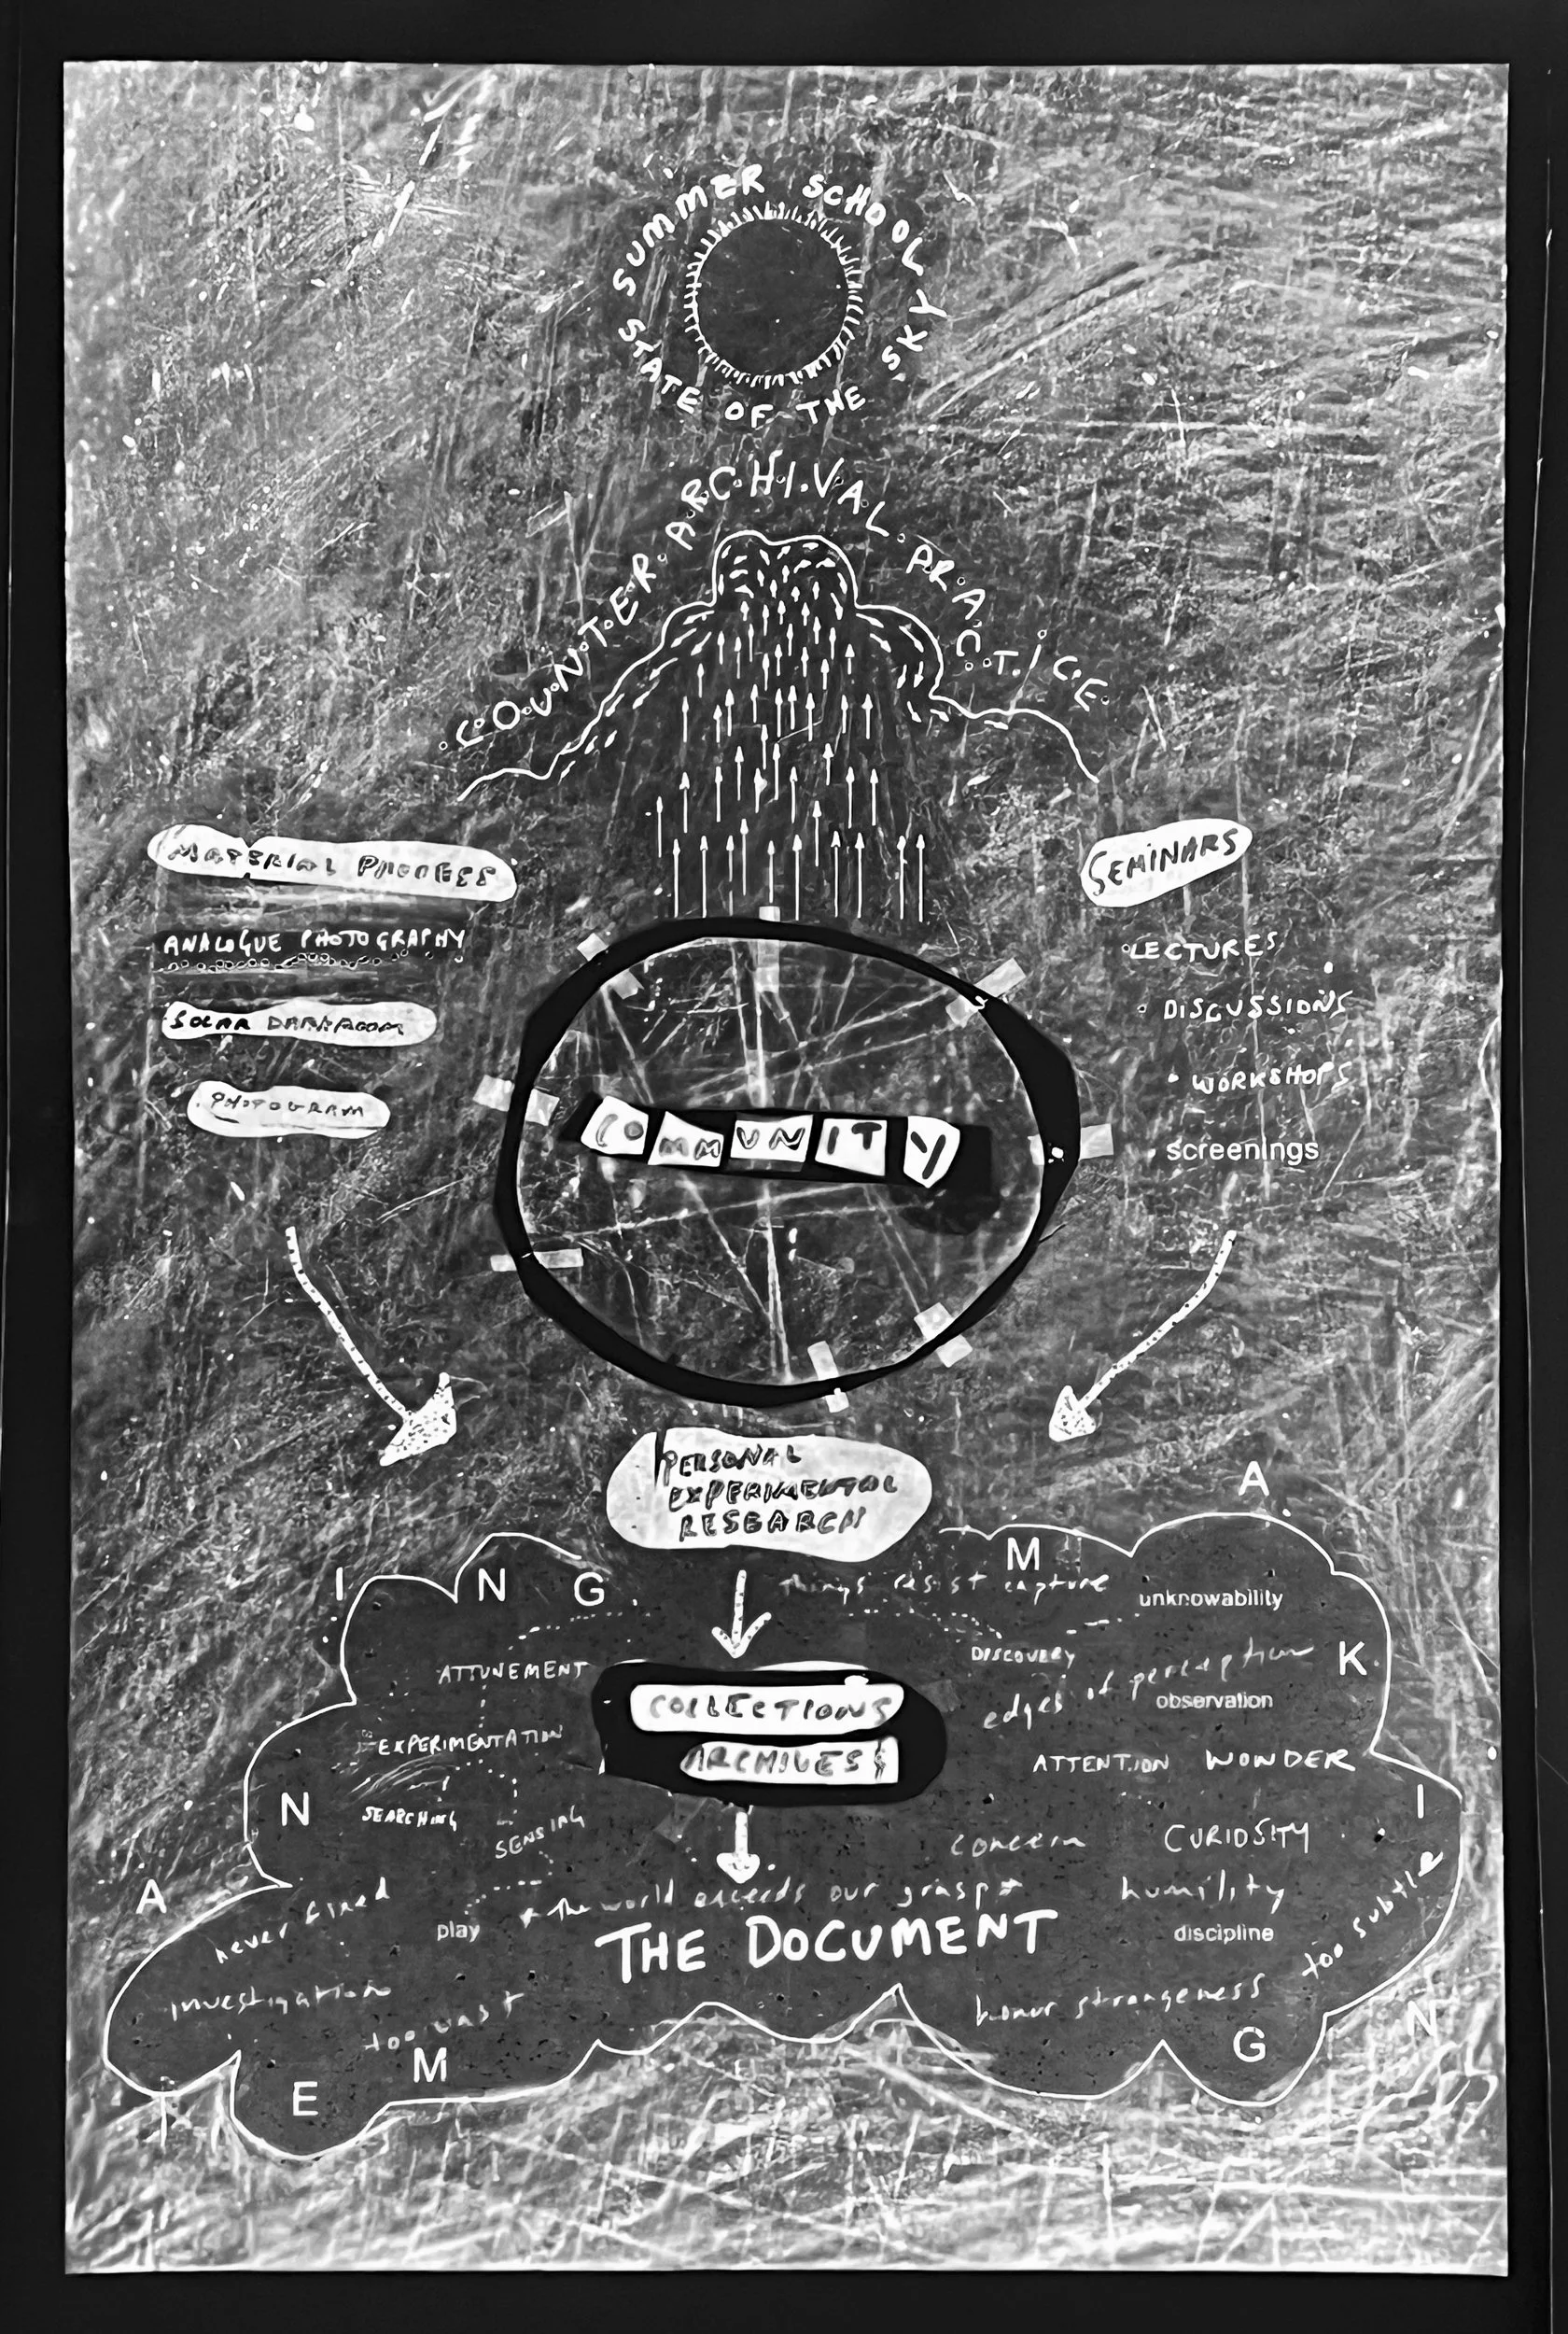 SUMMER SCHOOL
STATE OF THE SKY
COUNTER ARCHIVAL PRACTICE
MATERIAL PROCESS
ANALOGUE PHOTOGRAPHY
SOLAR DARKROOM
PHOTOGRAM
SEMINARS
• LECTURES
• DISCUSSIONS
• WORKSHOPS
• screenings
COMMUNITY
PERSONAL
EXPERIMENTAL
RESEARCH
MEANING
MAKING
things resist capture
unknowability
ATTUNEMENT
DISCOVERY
edges of perception
observation
COLLECTIONS
ARCHIVES
EXPERIMENTATION
ATTENTION WONDER
SEARCHING
SENSING
concern
CURIOSITY
never fixed
play
the world exceeds our grasp
humility
THE DOCUMENT
discipline
too subtle
investigation
too vast
honor strangeness